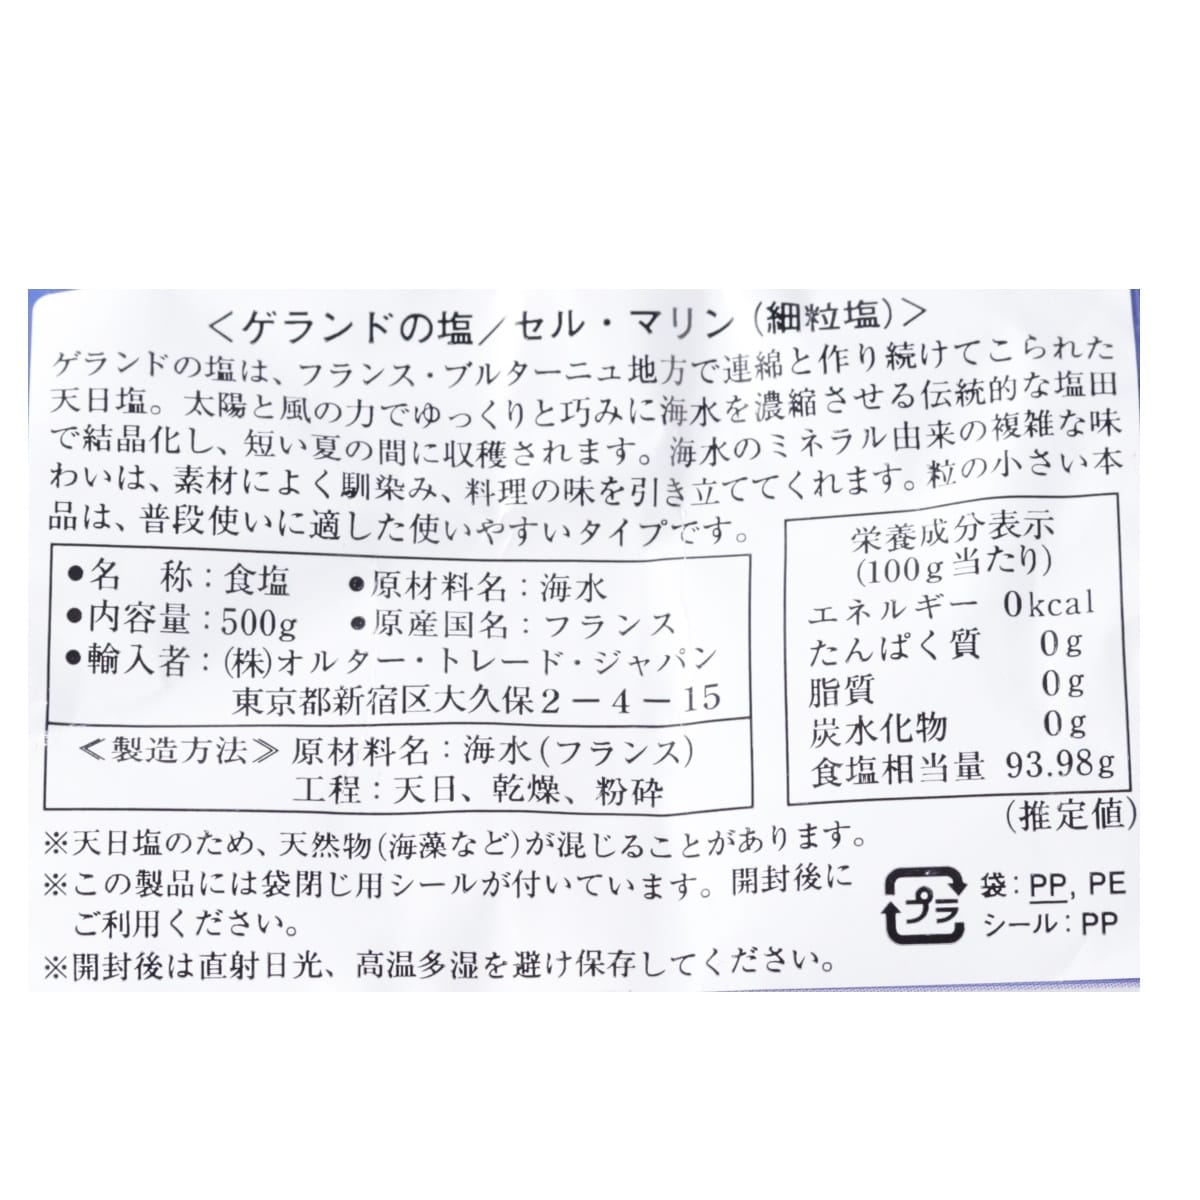 ＜ゲランドの塩／セル・マリン（細粒塩）＞
ゲランドの塩は、フランス・ブルターニュ地方で連綿と作り続けてこられた
天日塩。太陽と風の力でゆっくりと巧みに海水を濃縮させる伝統的な塩田
で結晶化し、短い夏の間に収穫されます。海水のミネラル由来の複雑な味
わいは、素材によく馴染み、料理の味を引き立ててくれます。粒の小さい本
品は、普段使いに適した使いやすいタイプです。
●名　称：食塩　●原材料名：海水
●内容量：500g　●原産国名：フランス
●輸入者：(株)オルター・トレード・ジャパン
東京都新宿区大久保2－4－15
≪製造方法≫原材料名：海水(フランス)
工程：天日、乾燥、粉砕
栄養成分表示
(100g当たり)
エネルギー 0kcal
たんぱく質 0g
脂質 0g
炭水化物 0g
食塩相当量 93.98g
(推定値)
※天日塩のため、天然物(海藻など)が混じることがあります。
※この製品には袋閉じ用シールが付いています。開封後に
ご利用ください。
※開封後は直射日光、高温多湿を避け保存してください。
プラ
袋：PP, PE
シール：PP